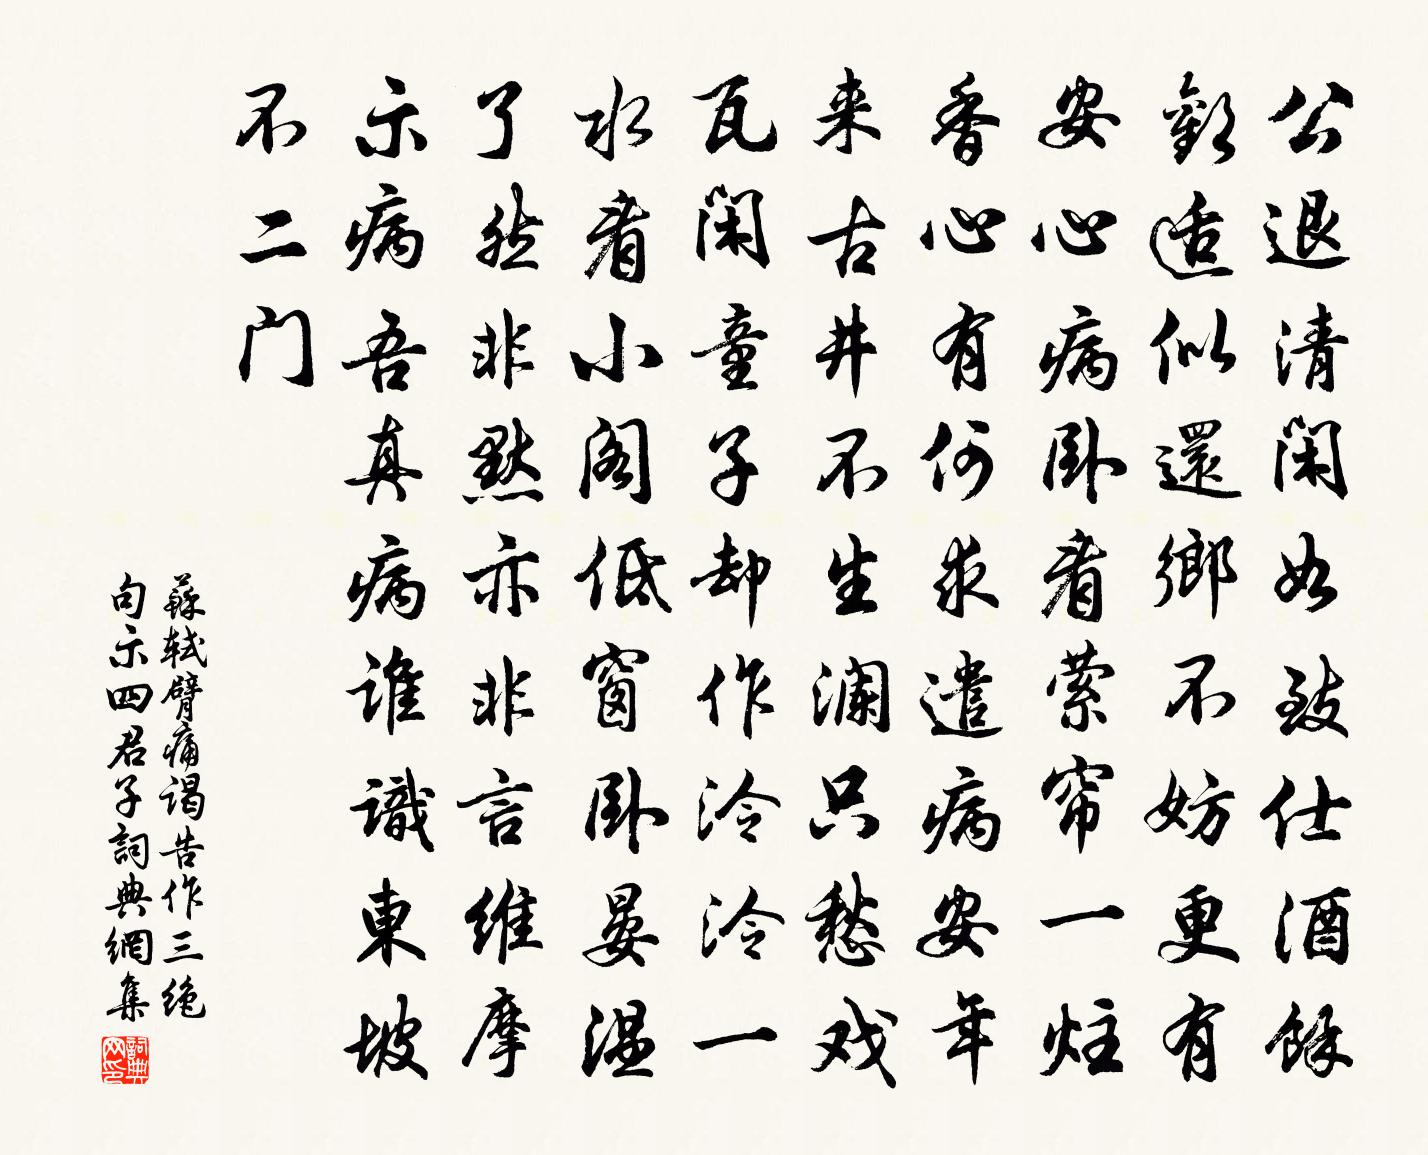 公退清閑如致仕酒餘
歡適似還鄉不妨更有
安心病卧看萦帘一炷
香心有何求遣病安年
来古井不生澜只愁戏
瓦閑童子却作泠泠一
水看小阁低窗卧晏温
了然非默亦非言維摩
示病吾真病誰識東坡
不二门
蘇轼臂痛谒告作三绝
句示四君子詞典網集
詞典网印